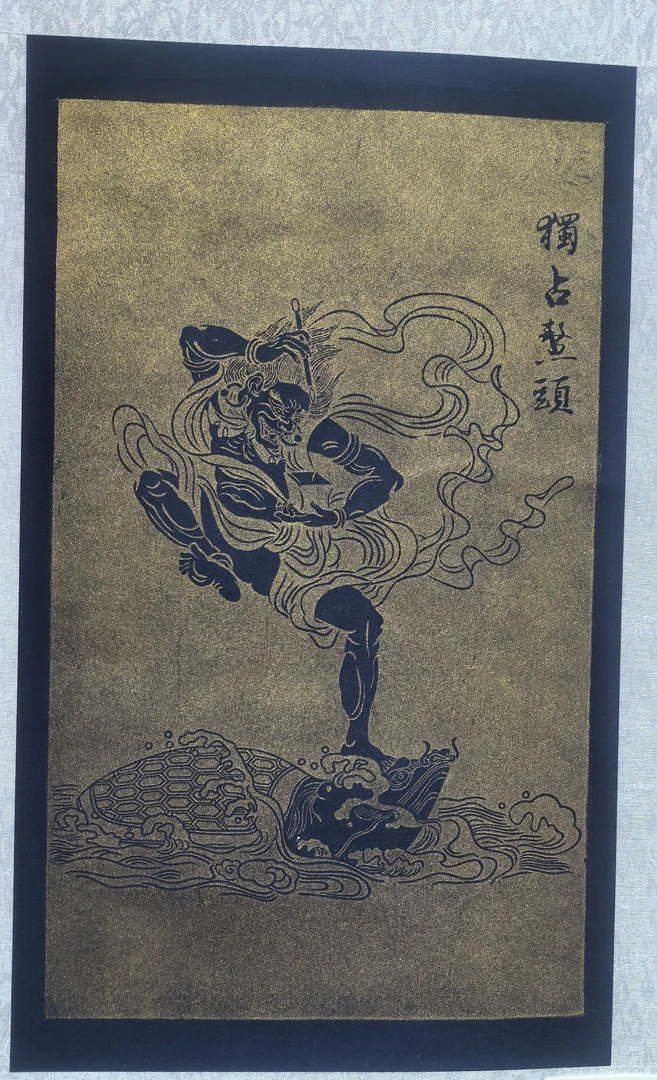 獨占鰲頭